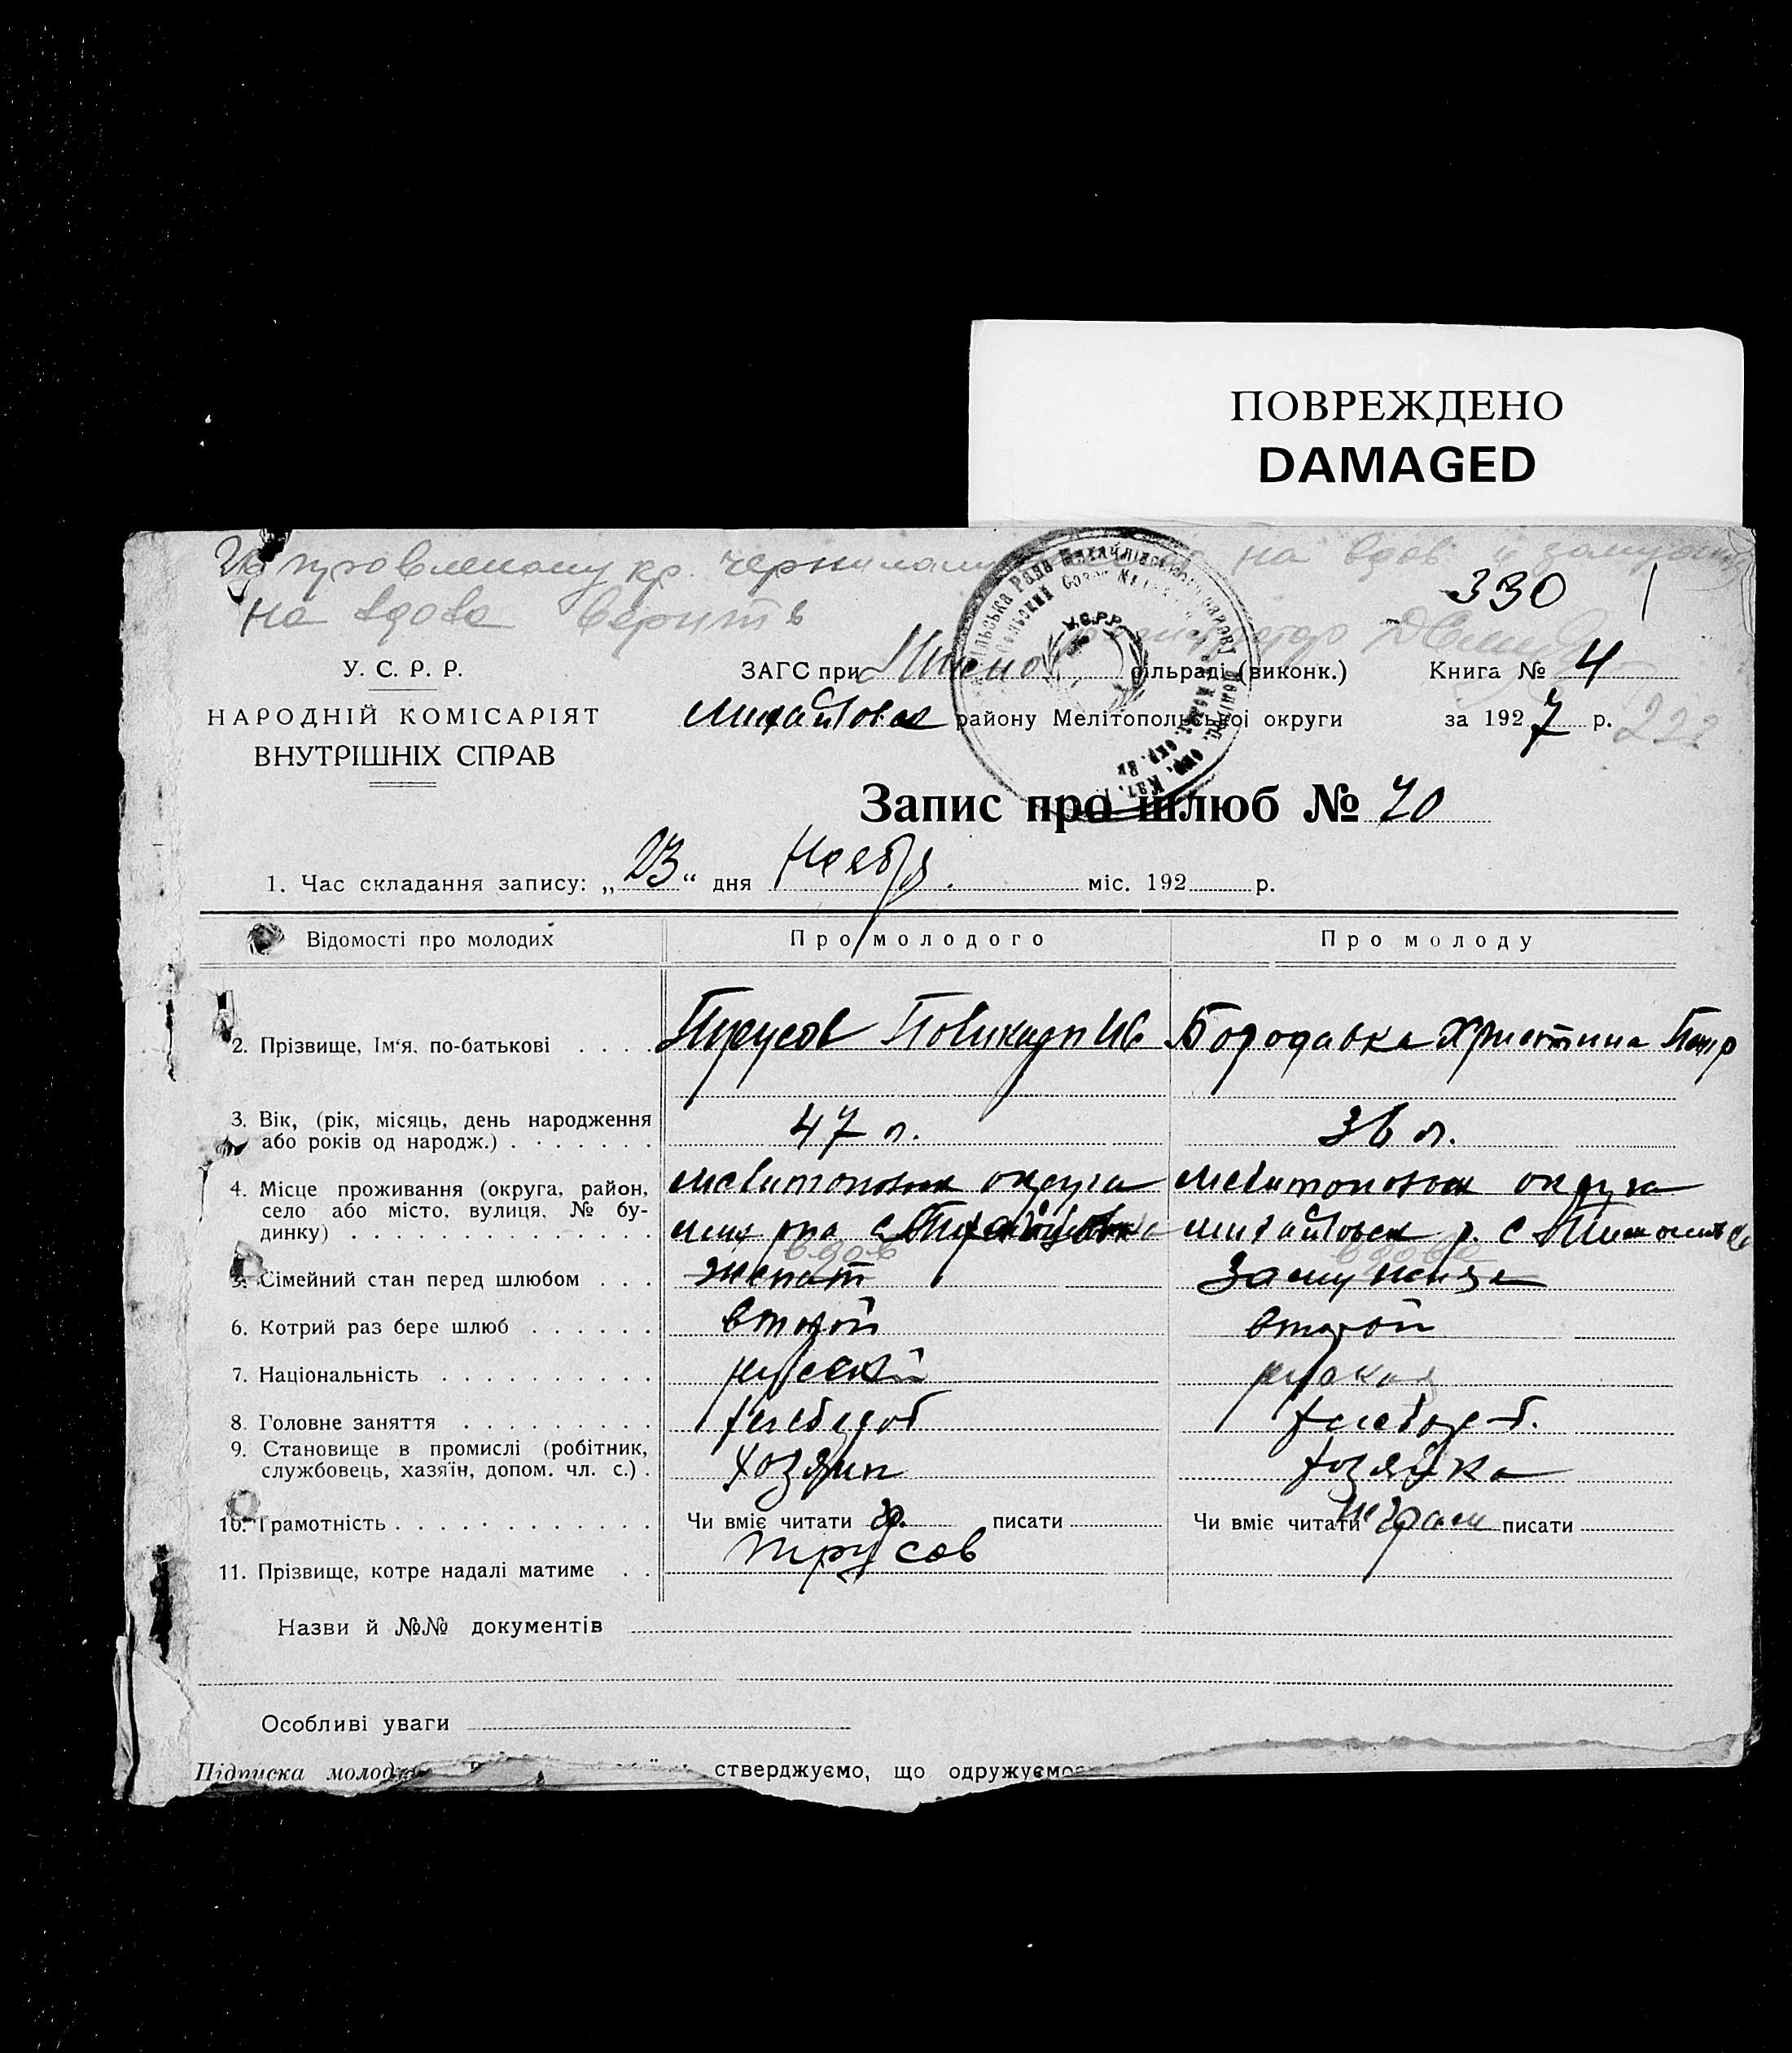 ПОВРЕЖДЕНО
DAMAGED
исправленому кр. чернилами на вдов и замужняя
на вдова верить
330
У. С. Р. Р.
НАРОДНІЙ КОМІСАРІЯТ
ВНУТРІШНІХ СПРАВ
ЗАГС при сільраді (виконк.)
Книга № 4
Михайловск району Мелітопольської округи
за 1927 р. 222
У.С.Р.Р.
Запис про шлюб № 70
1. Час складання запису: „23“ дня Ноября міс. 192 р.
Відомості про молодих
Про молодого
Про молоду
2. Прізвище, Ім‘я, по-батькові . . . .
Трусов Поликарп Ив
Бородавка Христина Петр
3. Вік, (рік, місяць, день народження
або років од народж.) . . . . . . .
47 л.
36 л.
4. Місце проживання (округа, район,
село або місто, вулиця, № бу-
динку) . . . . . . . . . . . . . .
Мелитопольск округа
Мих р-на с
Мелитопольск округа
Михайловск р. с
5. Сімейний стан перед шлюбом . . .
женат
вдов
Замужняя
вдова
6. Котрий раз бере шлюб . . . . . .
второй
второй
7. Національність . . . . . . . . . .
русский
руская
8. Головне заняття . . . . . . . . .
хлебороб
хлебороб.
9. Становище в промислі (робітник,
службовець, хазяїн, допом. чл. с.) .
хозяин
хозяйка
10. Грамотність . . . . . . . . . . . .
Чи вміє читати гр. писати
Чи вміє читати неграм писати
11. Прізвище, котре надалі матиме . .
Трусов
Назви й №№ документів
Особливі уваги
Підписка молодих
стверджуємо, що одружуємос